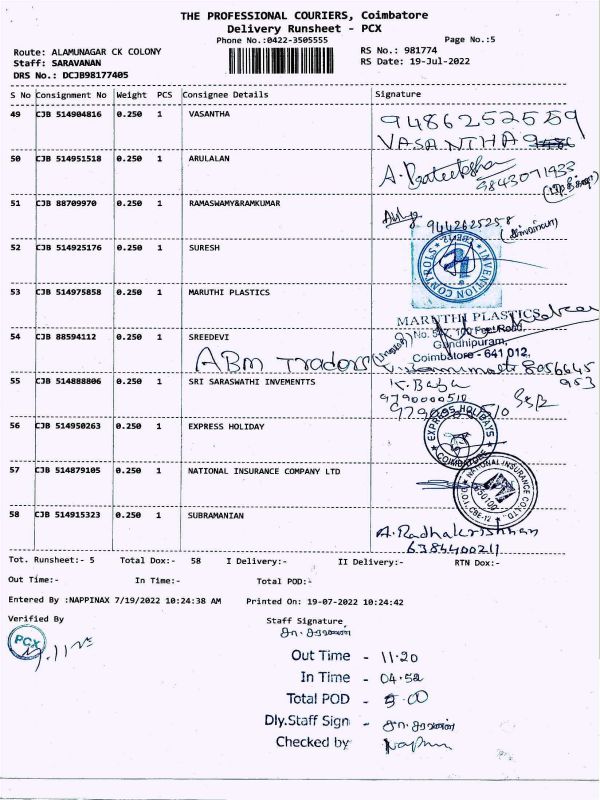 THE PROFESSIONAL COURIERS, Coimbatore
Delivery Runsheet - PCX
Phone No.:0422-3505555
Page No.:5
Route: ALAMUNAGAR CK COLONY
RS No.: 981774
Staff: SARAVANAN
RS Date: 19-Jul-2022
DRS No.: DCJB98177405
S No Consignment No Weight PCS Consignee Details Signature
49 CJB 514904816 0.250 1 VASANTHA 9486252559
VASANTHA
50 CJB 514951518 0.250 1 ARULALAN
9843071933
51 CJB 88709970 0.250 1 RAMASWAMY&RAMKUMAR
9442625258
52 CJB 514925176 0.250 1 SURESH
53 CJB 514975858 0.250 1 MARUTHI PLASTICS
MARUTHI PLASTICS
100 Feet Road,
Gandhipuram,
Coimbatore - 641 012.
54 CJB 88594112 0.250 1 SREEDEVI
ABM Traders
8056645
953
55 CJB 514888806 0.250 1 SRI SARASWATHI INVEMENTTS K. Baba
9790000510
56 CJB 514950263 0.250 1 EXPRESS HOLIDAY
EXPRESS HOLIDAYS
COIMBATORE
57 CJB 514879105 0.250 1 NATIONAL INSURANCE COMPANY LTD
NATIONAL INSURANCE CO. LTD.
58 CJB 514915323 0.250 1 SUBRAMANIAN
A. Radhakrishnan
6384400211
Tot. Runsheet:- 5 Total Dox:- 58 I Delivery:- II Delivery:- RTN Dox:-
Out Time:- In Time:- Total POD:-
Entered By :NAPPINAX 7/19/2022 10:24:38 AM Printed On: 19-07-2022 10:24:42
Verified By
Staff Signature
PCX
சா. சரவணன்
Out Time - 11-20
In Time - 04.52
Total POD -
Dly.Staff Sign - சா. சரவணன்
Checked by